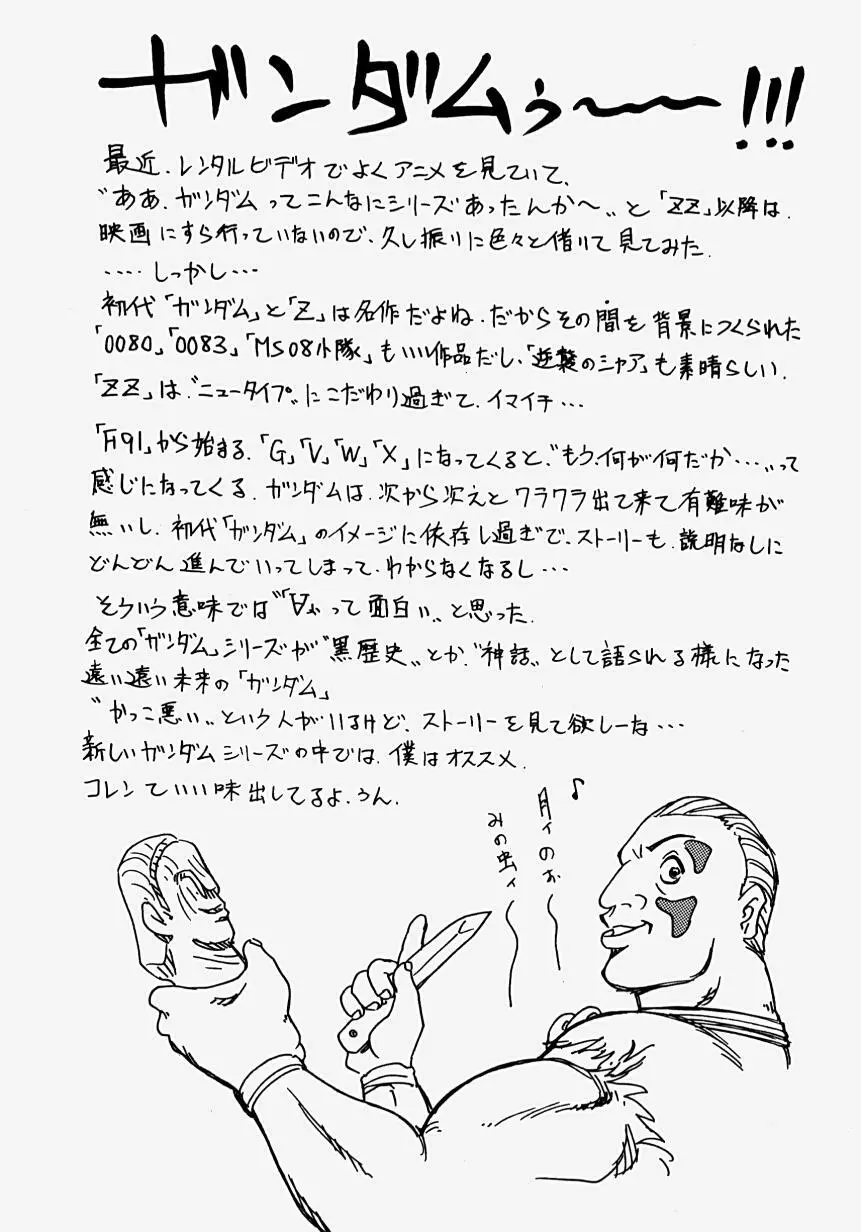 ガンダムぅ〜〜!!!
最近、レンタルビデオでよくアニメを見ていて、
〝ああ、ガンダムってこんなにシリーズあったんか〜〟と「ZZ」以降は、
映画にすら行っていないので、久し振りに色々と借りて見てみた。
‥‥しっかし‥‥
初代「ガンダム」と「Z」は名作だよね、だからその間を背景につくられた
「0080」「0083」「MS08小隊」もいい作品だし、「逆襲のシャア」も素晴らしい。
「ZZ」は、〝ニュータイプ〟にこだわり過ぎて、イマイチ‥‥
「F91」から始まる、「G」「V」「W」「X」になってくると、〝もう、何が何だか‥‥〟って
感じになってくる。ガンダムは、次から次えとワラワラ出て来て有難味が
無いし、初代「ガンダム」のイメージに依存し過ぎで、ストーリーも、説明なしに
どんどん進んでいってしまって、わからなくなるし‥‥
そういう意味では〝∀〟って面白い、と思った。
全ての「ガンダム」シリーズが〝黒歴史〟とか、〝神話〟として語られる様になった
遠い遠い未来の「ガンダム」
〝かっこ悪い〟という人がいるけど、ストーリーを見て欲しーな‥‥
新しいガンダムシリーズの中では、僕はオススメ。
コレンていい味出してるよ、うん。
♪
月ィのォ〜
みの虫ィ〜